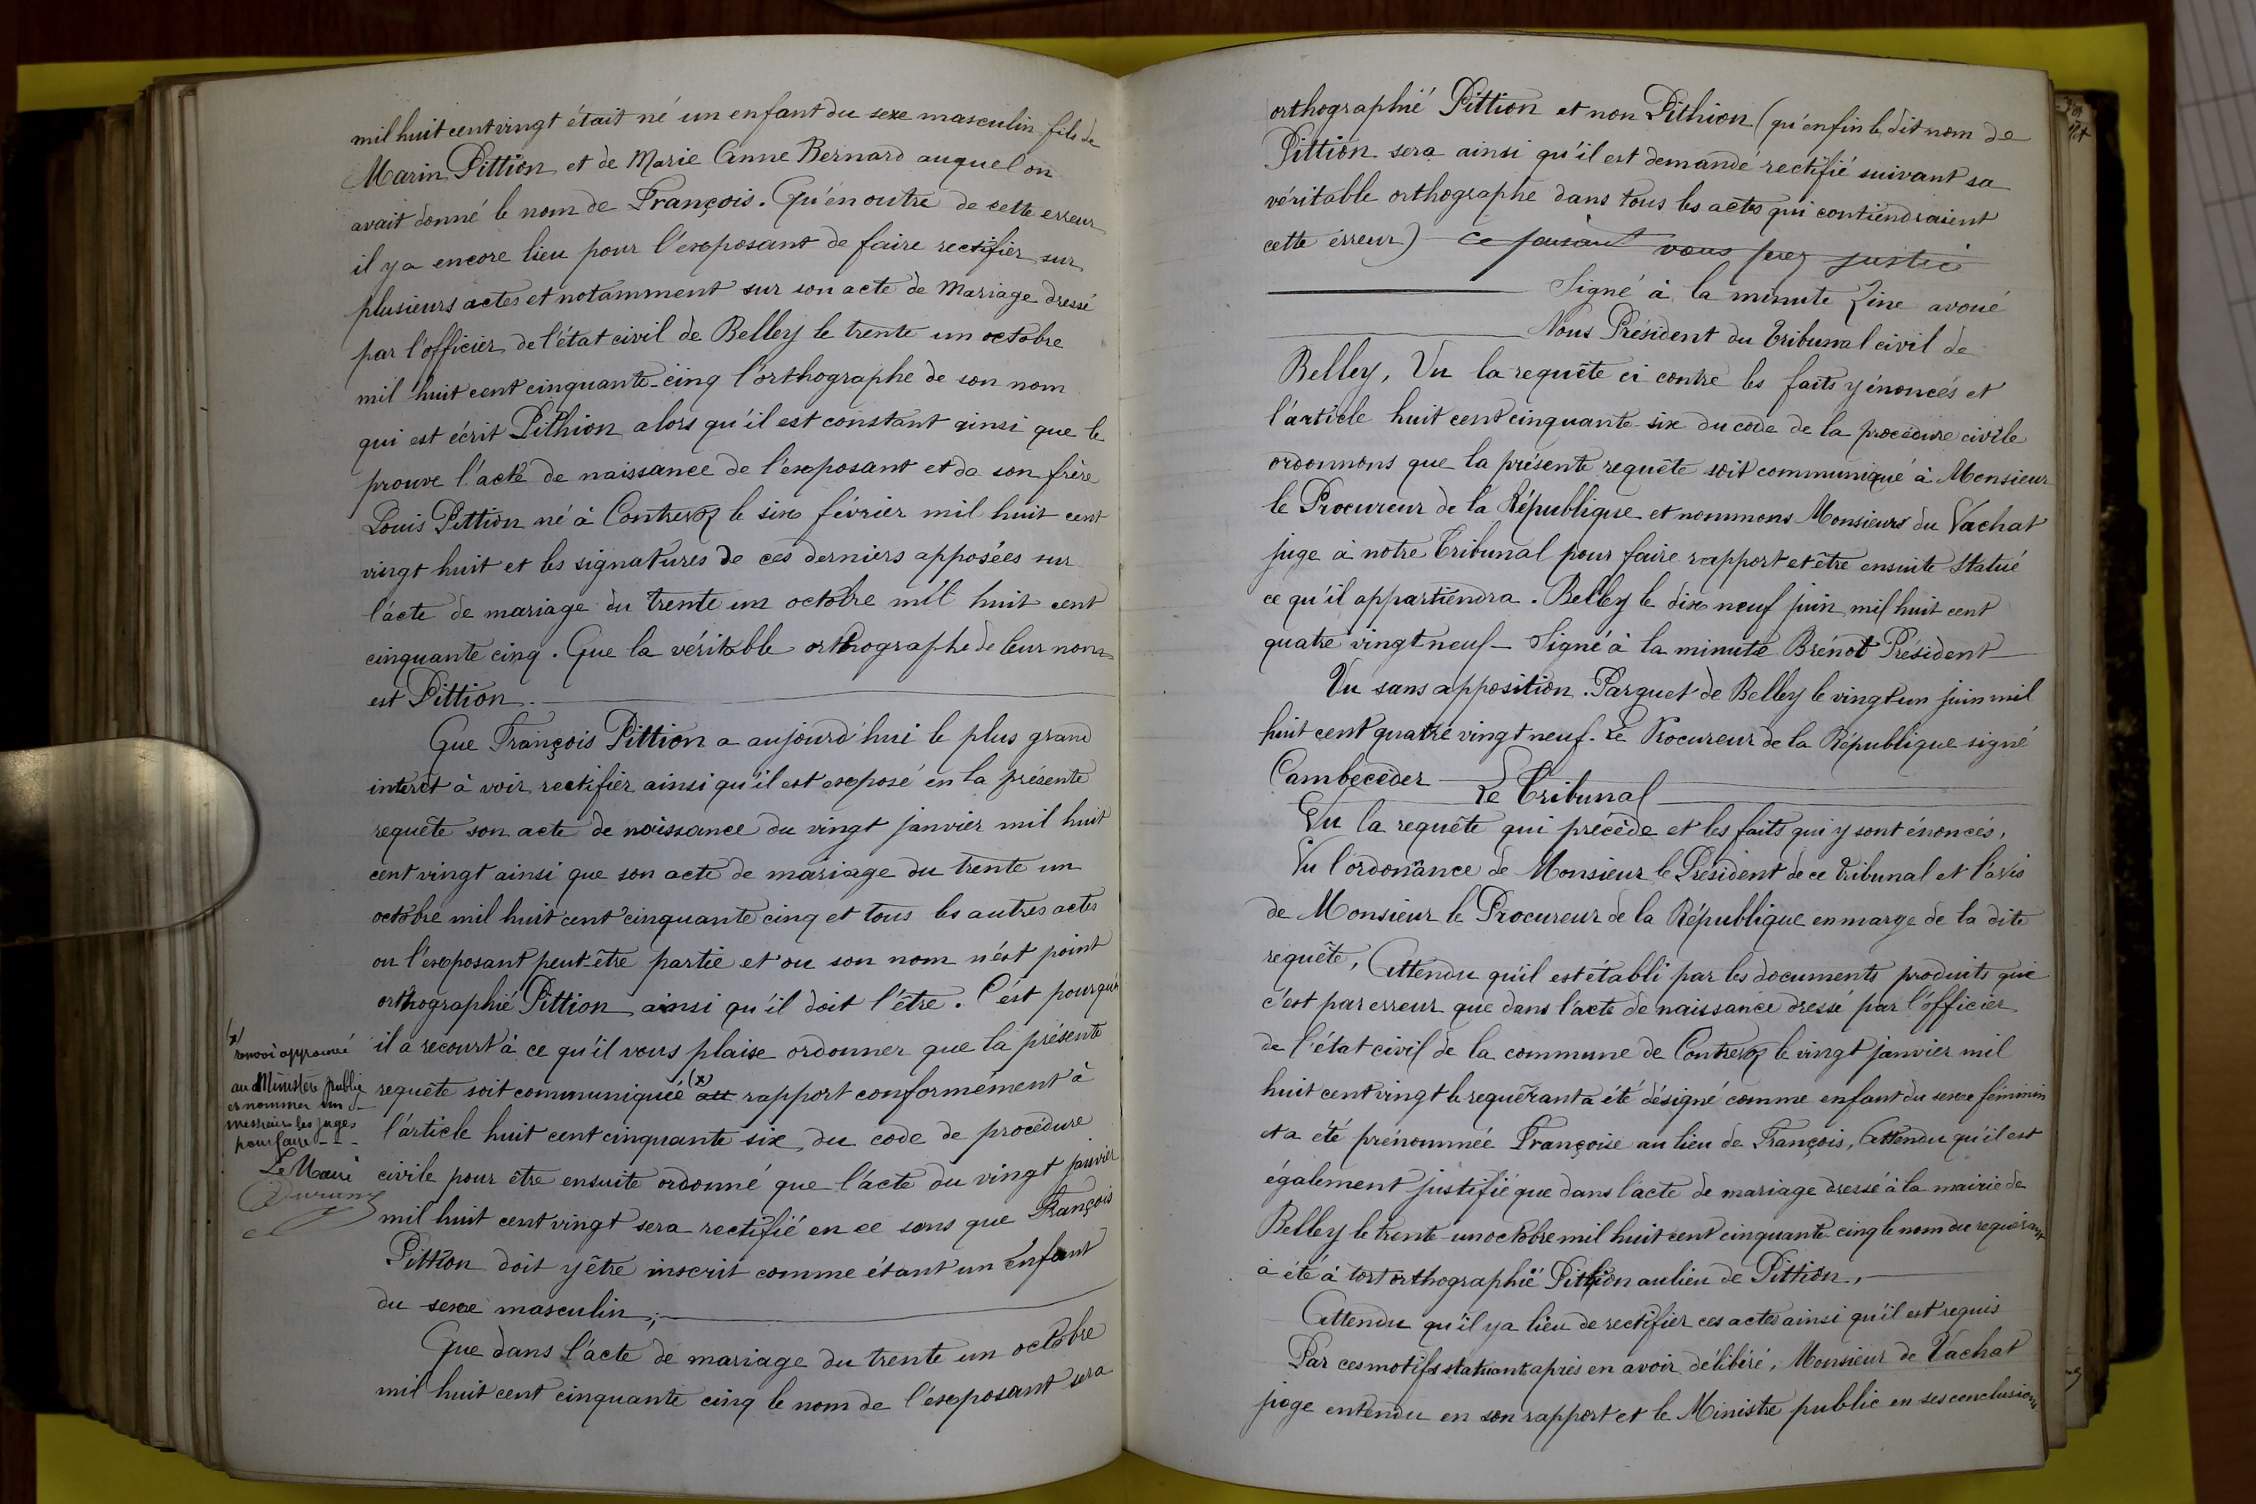 mil huit cent vingt était né un enfant du sexe masculin fils de
Marin Pittion et de Marie Anne Bernard auquel on
avait donné le nom de François. Qu'en outre de cette erreur
il y a encore lieu pour l'exposant de faire rectifier sur
plusieurs actes et notamment sur son acte de Mariage dressé
par l'officier de l'état civil de Belley le trente un octobre
mil huit cent cinquante-cinq l'orthographe de son nom
qui est écrit Pithion alors qu'il est constant ainsi que le
prouve l'acte de naissance de l'exposant et de son frère
Louis Pittion né à Contrevoz le six février mil huit cent
vingt huit et les signatures de ces derniers apposées sur
l'acte de mariage du trente un octobre mil huit cent
cinquante cinq. Que la véritable orthographe de leur nom
est Pittion.
Que François Pittion a aujourd'hui le plus grand
interet à voir rectifier ainsi qu'il est exposé en la présente
requête son acte de naissance du vingt janvier mil huit
cent vingt ainsi que son acte de mariage du trente un
octobre mil huit cent cinquante cinq et tous les autres actes
ou l'exposant peut-être partie et ou son nom n'est point
orthographié Pittion ainsi qu'il doit l'être. C'est pourquoi
il a recourt à ce qu'il vous plaise ordonner que la présente
requête soit communiquée (x) au rapport conformément à
l'article huit cent cinquante six du code de procédure
civile pour être ensuite ordonné que l'acte du vingt janvier
mil huit cent vingt sera rectifié en ce sens que François
Pittion doit y être inscrit comme étant un Enfant
du sexe masculin;
Que dans l'acte de mariage du trente un octobre
mil huit cent cinquante cinq le nom de l'exposant sera
(x)
renvoi approuvé
au Ministère public
et nommer un de
messieurs les juges
pour faire
Le Maire
Durand
orthographié Pittion et non Pithion (qu'enfin le dit nom de
Pittion sera ainsi qu'il est demandé rectifié suivant sa
véritable orthographe dans tous les actes qui contiendraient
cette erreur) ce faisant vous ferez justice
Signé à la minute Zine avoué
Nous Président du Tribunal civil de
Belley, Vu la requête ci contre les faits y énoncés et
l'article huit cent cinquante-six du code de la procédure civile
ordonnons que la présente requête soit communiqué à Monsieur
le Procureur de la République et nommons Monsieur du Vachat
juge à notre Tribunal pour faire rapport et être ensuite statué
ce qu'il appartiendra. Belley le dix neuf juin mil huit cent
quatre vingt neuf - Signé à la minute Brénot Président
Vu sans apposition. Parquet de Belley le vingt un juin mil
huit cent quatre vingt neuf. Le Procureur de la République signé
Cambecèder
Le Tribunal
Vu la requête qui précède et les faits qui y sont énoncés,
Vu l'ordonnance de Monsieur le Président de ce Tribunal et l'avis
de Monsieur le Procureur de la République en marge de la dite
requête, Attendu qu'il est établi par les documents produits que
c'est par erreur que dans l'acte de naissance dressé par l'officier
de l'état civil de la commune de Contrevoz le vingt janvier mil
huit cent vingt le requérant a été désigné comme enfant du sexe féminin
et a été prénommée Françoise au lieu de François, Attendu qu'il est
également justifié que dans l'acte de mariage dressé à la mairie de
Belley le trente-un octobre mil huit cent cinquante-cinq le nom du requérant
a été à tort orthographié Pithion au lieu de Pittion,
Attendu qu'il y a lieu de rectifier ces actes ainsi qu'il est requis
Par ces motifs statuant après en avoir délibéré, Monsieur de Vachat
juge entendu en son rapport et le Ministre public en ses conclusions